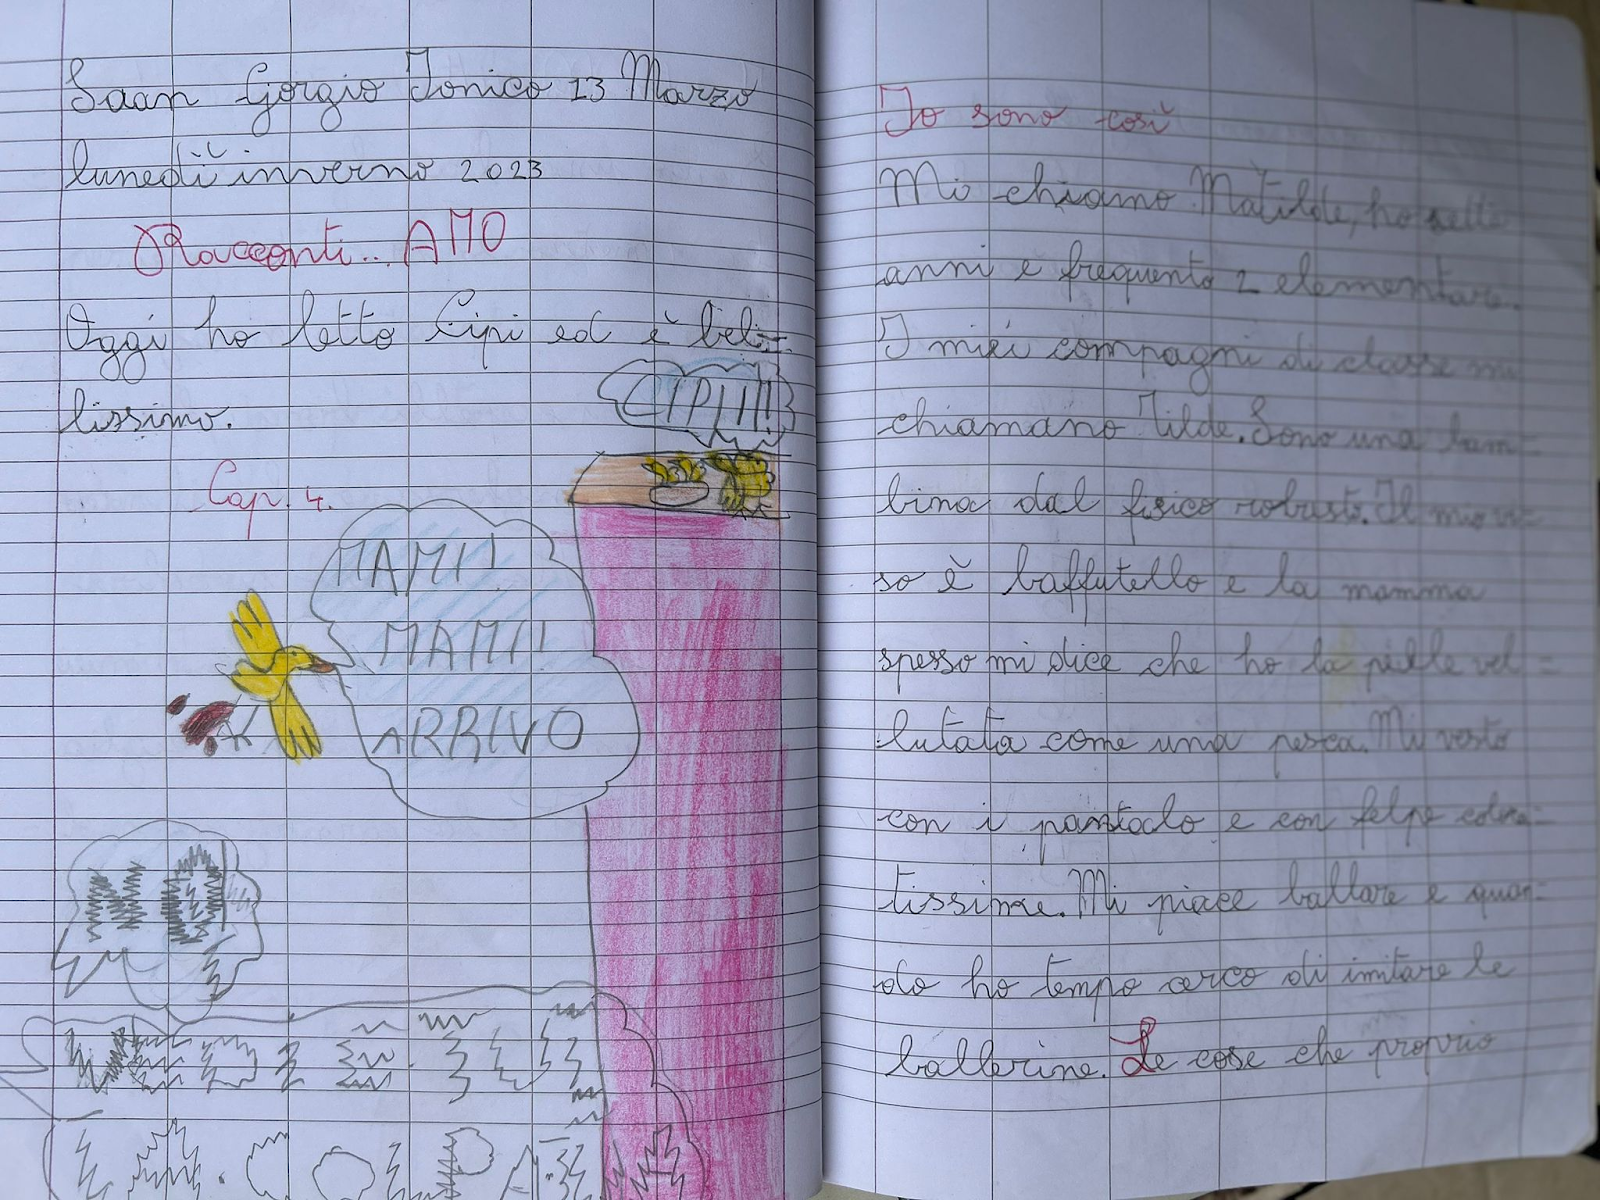 Saan Gorgio Jonico 13 Marzo
lunedì inverno 2023
Racconti... AMO
Oggi ho letto Cipi ed è bel=
lissimo.
CIPIII!!
Cap. 4.
MAMI!
MAMI!
ARRIVO
Io sono così
Mi chiamo Matilde, ho sette
anni e frequento 2 elementare.
I miei compagni di classe mi
chiamano Tilde. Sono una bam=
bina dal fisico robusto. Il mio vi=
so è baffutello e la mamma
spesso mi dice che ho la pelle vel=
lutata come una pesca. Mi vesto
con i e con felpe colora=
tissime. Mi piace ballare e quan=
do ho tempo cerco di imitare le
ballerine. Le cose che proprio